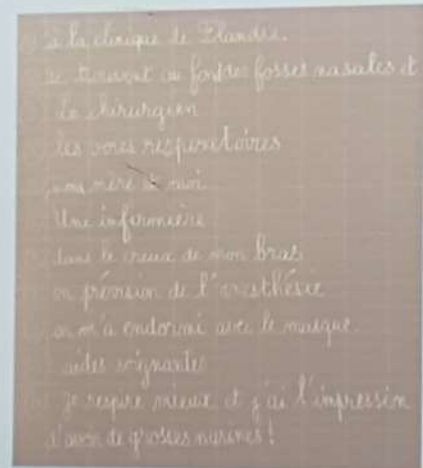 à la clinique de Flandre.
se trouvent au fond des fosses nasales et
le chirurgien
les voies respiratoires
ma mère et moi
Une infirmière
dans le creux de mon bras
en prévision de l'anesthésie
on m'a endormi avec le masque.
aides soignantes
je respire mieux et j'ai l'impression
d'avoir de grosses narines !